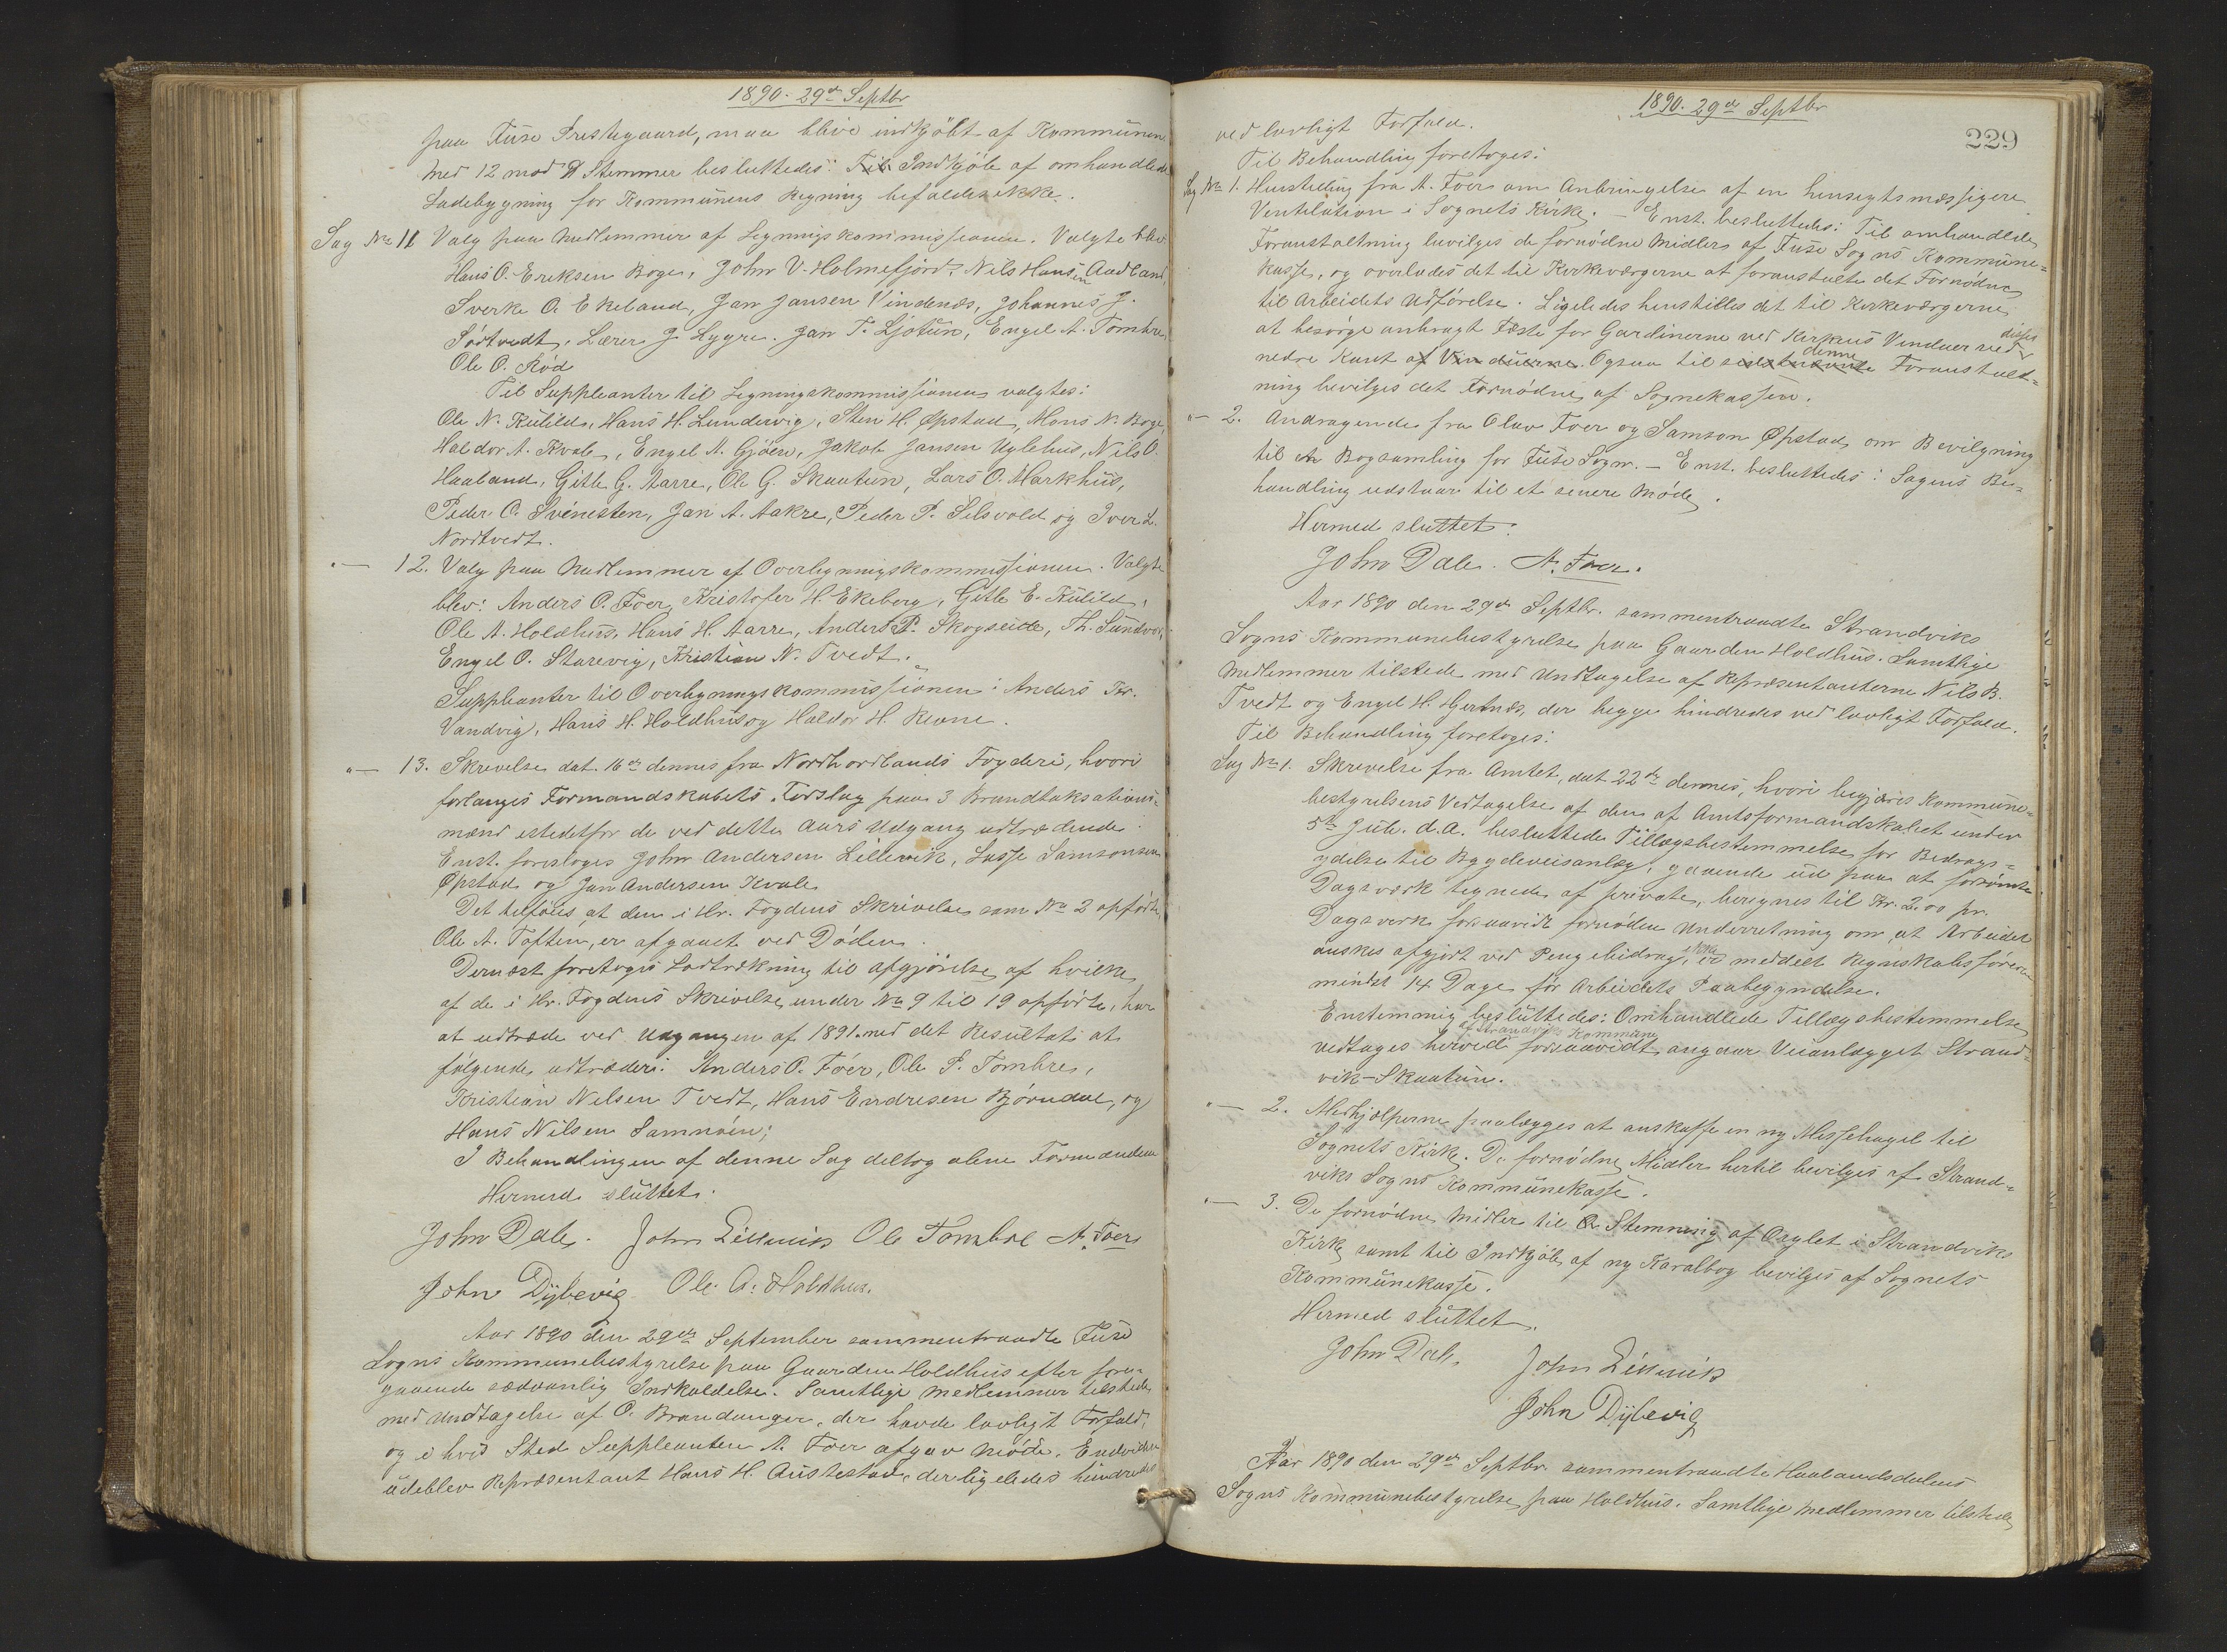 1890. 29de Septbr
paa Fuse Prestegaard, maa blive indkjöbt af Kommunen.
Med 12 mod 4 Stemmer besluttedes: Til Indkjöb af omhandlede
Ladebygning for Kommunens Regning befaldes ikke.
Sag No 11 Valg paa Medlemmer af Ligningskommissionen. Valgte blev
Hans O. Eriksen Boge, John V. Holmefjord, Nils Hansen Aadland,
Sverke O. Ekeland, Jan Jansen Vindenæs, Johannes J.
Sörtvedt, Lærer J. Lygre. Jan T. Ljotun, Engel A. Tombre,
Ole O. Röd
Til Suppleanter til Ligningskommissionen valgtes:
Ole N. Kulild, Hans H. Lundervig, Sten H. Opstad, Mons N. Boge,
Haldor A. Kvale, Engel A. Gjöen, Jakob Jansen Uglehus, Nils O.
Haaland, Gitle G. Aarre, Ole G. Skaatun, Lars O. Markhus,
Peder O. Svinesten, Jan A. Aakre, Peder P. Silsvold og Iver L.
Nordtvedt.
"— 12. Valg paa Medlemmer af Overligningskommissionen. Valgte
blev: Anders O. Foer, Kristofer H. Ekeberg, Gitle E. Kulild,
Ole A. Holdhus, Hans H. Aarre, Anders P. Skogseide, Th. Sundvor,
Engel O. Starevig, Kristian N. Tvedt.
Suppleanter til Overligningskommissionen: Anders Kr.
Vandvig, Hans H. Holdhus og Haldor H. Revne.
"— 13. Skrivelse dat. 16de dennes fra Nordhordlands Fogderi, hvori
forlanges Formandskabets Forslag paa 3 Brandtaksations-
mænd istedetfor de ved dette Aars Udgang udtrædende
Enst. foresloges John Andersen Lillevik, Lasse Samsonsen
Opstad og Jan Andersen Kvale
Det tilföies at den i Hr. Fogdens Skrivelse som No 2 opförte
Ole A. Toften, er afgaaet ved Döden.
Dernæst foretoges Lodtrækning til afgjörelse af hvilke
af de i Hr. Fogdens Skrivelse under No 9 til 19 opförte, har
at udtræde ved Udgangen af 1891. med det Resultat at
fölgende udtræder: Anders O. Foer, Ole P. Tombre,
Kristian Nilsen Tvedt, Hans Endresen Björndal, og
Hans Nilsen Samnöen;
I Behandlingen af denne Sag deltog alene Formændene
Hermed sluttet.
John Dale. John Lillevik Ole Tombre A. Foer
John Dybevig Ole A. Holdhus.
Aar 1890 den 29de September sammentraadte Fuse
Sogns Kommunebestyrelse paa Gaarden Holdhus efter fore-
gaaende sædvanlig Indkaldelse. Samtlige Medlemmer tilstede
med Undtagelse af O. Brandanger, der havde lovligt Forfald,
og i hvis Sted Suppleanten A. Foer afgav Möde. Endvidere
udeblev Repræsentant Hans H. Austestad, der ligeledes hindredes
1890. 29de Septbr
229
ved lovligt Forfald.
Til Behandling foretoges:
Sag No 1. Henstilling fra A. Foer om Anbringelse af en hensigtsmæssigere
Ventilation i Sognets Kirke. — Enst. besluttedes: Til omhandlede
Foranstaltning bevilges de fornödne Midler af Fuse Sogns Kommune-
kasse, og overlades det til Kirkeværgerne at foranstalte det Fornödne
til Arbeidets Udförelse. Ligeledes henstilles det til Kirkeværgerne
at besörge anbragt Fæste for Gardinerne ved Kirkens Vinduer ved disses
nedre Kant af Vinduerne. Ogsaa til sidstnævnte denne Foranstalt-
ning bevilges det Fornödne af Sognekassen.
"— 2. Andragende fra Olav Foer og Samson Opstad om Bevilgning
til en Bogsamling for Fuse Sogn. — Enst. besluttedes: Sagens Be-
handling udstaar til et senere Möde.
Hermed sluttet.
John Dale. A. Foer.
Aar 1890 den 29de Septbr. sammentraadte Strandviks
Sogns Kommunebestyrelse paa Gaarden Holdhus. Samtlige
Medlemmer tilstede med Undtagelse af Repræsentanterne Nils B.
Tvedt og Engel H. Gjertnæs, der begge hindredes ved lovligt Forfald.
Til Behandling foretoges:
Sag No 1. Skrivelse fra Amtet, dat 22de dennes, hvori begjæres Kommune-
bestyrelsens Vedtagelse af den af Amtsformandskabet under
5te Juli d.A. besluttede Tillægsbestemmelse for Bidrags-
ydelse til Bygdeveisanlæg, gaaende ud paa at forsömte
Dagsværk tegnede af private, beregnes til Kr. 2.00 pr.
Dagsverk forsaavidt fornöden Underretning om, at Arbeidet
önskes afgjort ved Pengebidrag, ikke er meddelt Regnskabsföreren
mindst 14 Dage för Arbeidets Paabegyndelse.
Enstemmig besluttedes: Omhandlede Tillægsbestemmelse
vedtages herved af Strandvik Kommune forsaavidt angaar Veianlægget Strand-
vik-Skaatun.
"— 2. Medhjælperne paalægges at anskaffe en ny Messehagel til
Sognets Kirke. De fornödne Midler hertil bevilges af Strand-
viks Sogns Kommunekasse.
"— 3. De fornödne Midler til Stemning af Orglet i Strandviks
Kirke samt til Indkjöb af ny Koralbog bevilges af Sognets
Kommunekasse.
Hermed sluttet.
John Dale. John Lillevik
John Dybevig
Aar 1890 den 29de Septbr. sammentraadte Haalandsdalens
Sogns Kommunebestyrelse paa Holdhus. Samtlige Medlemmer tilstede